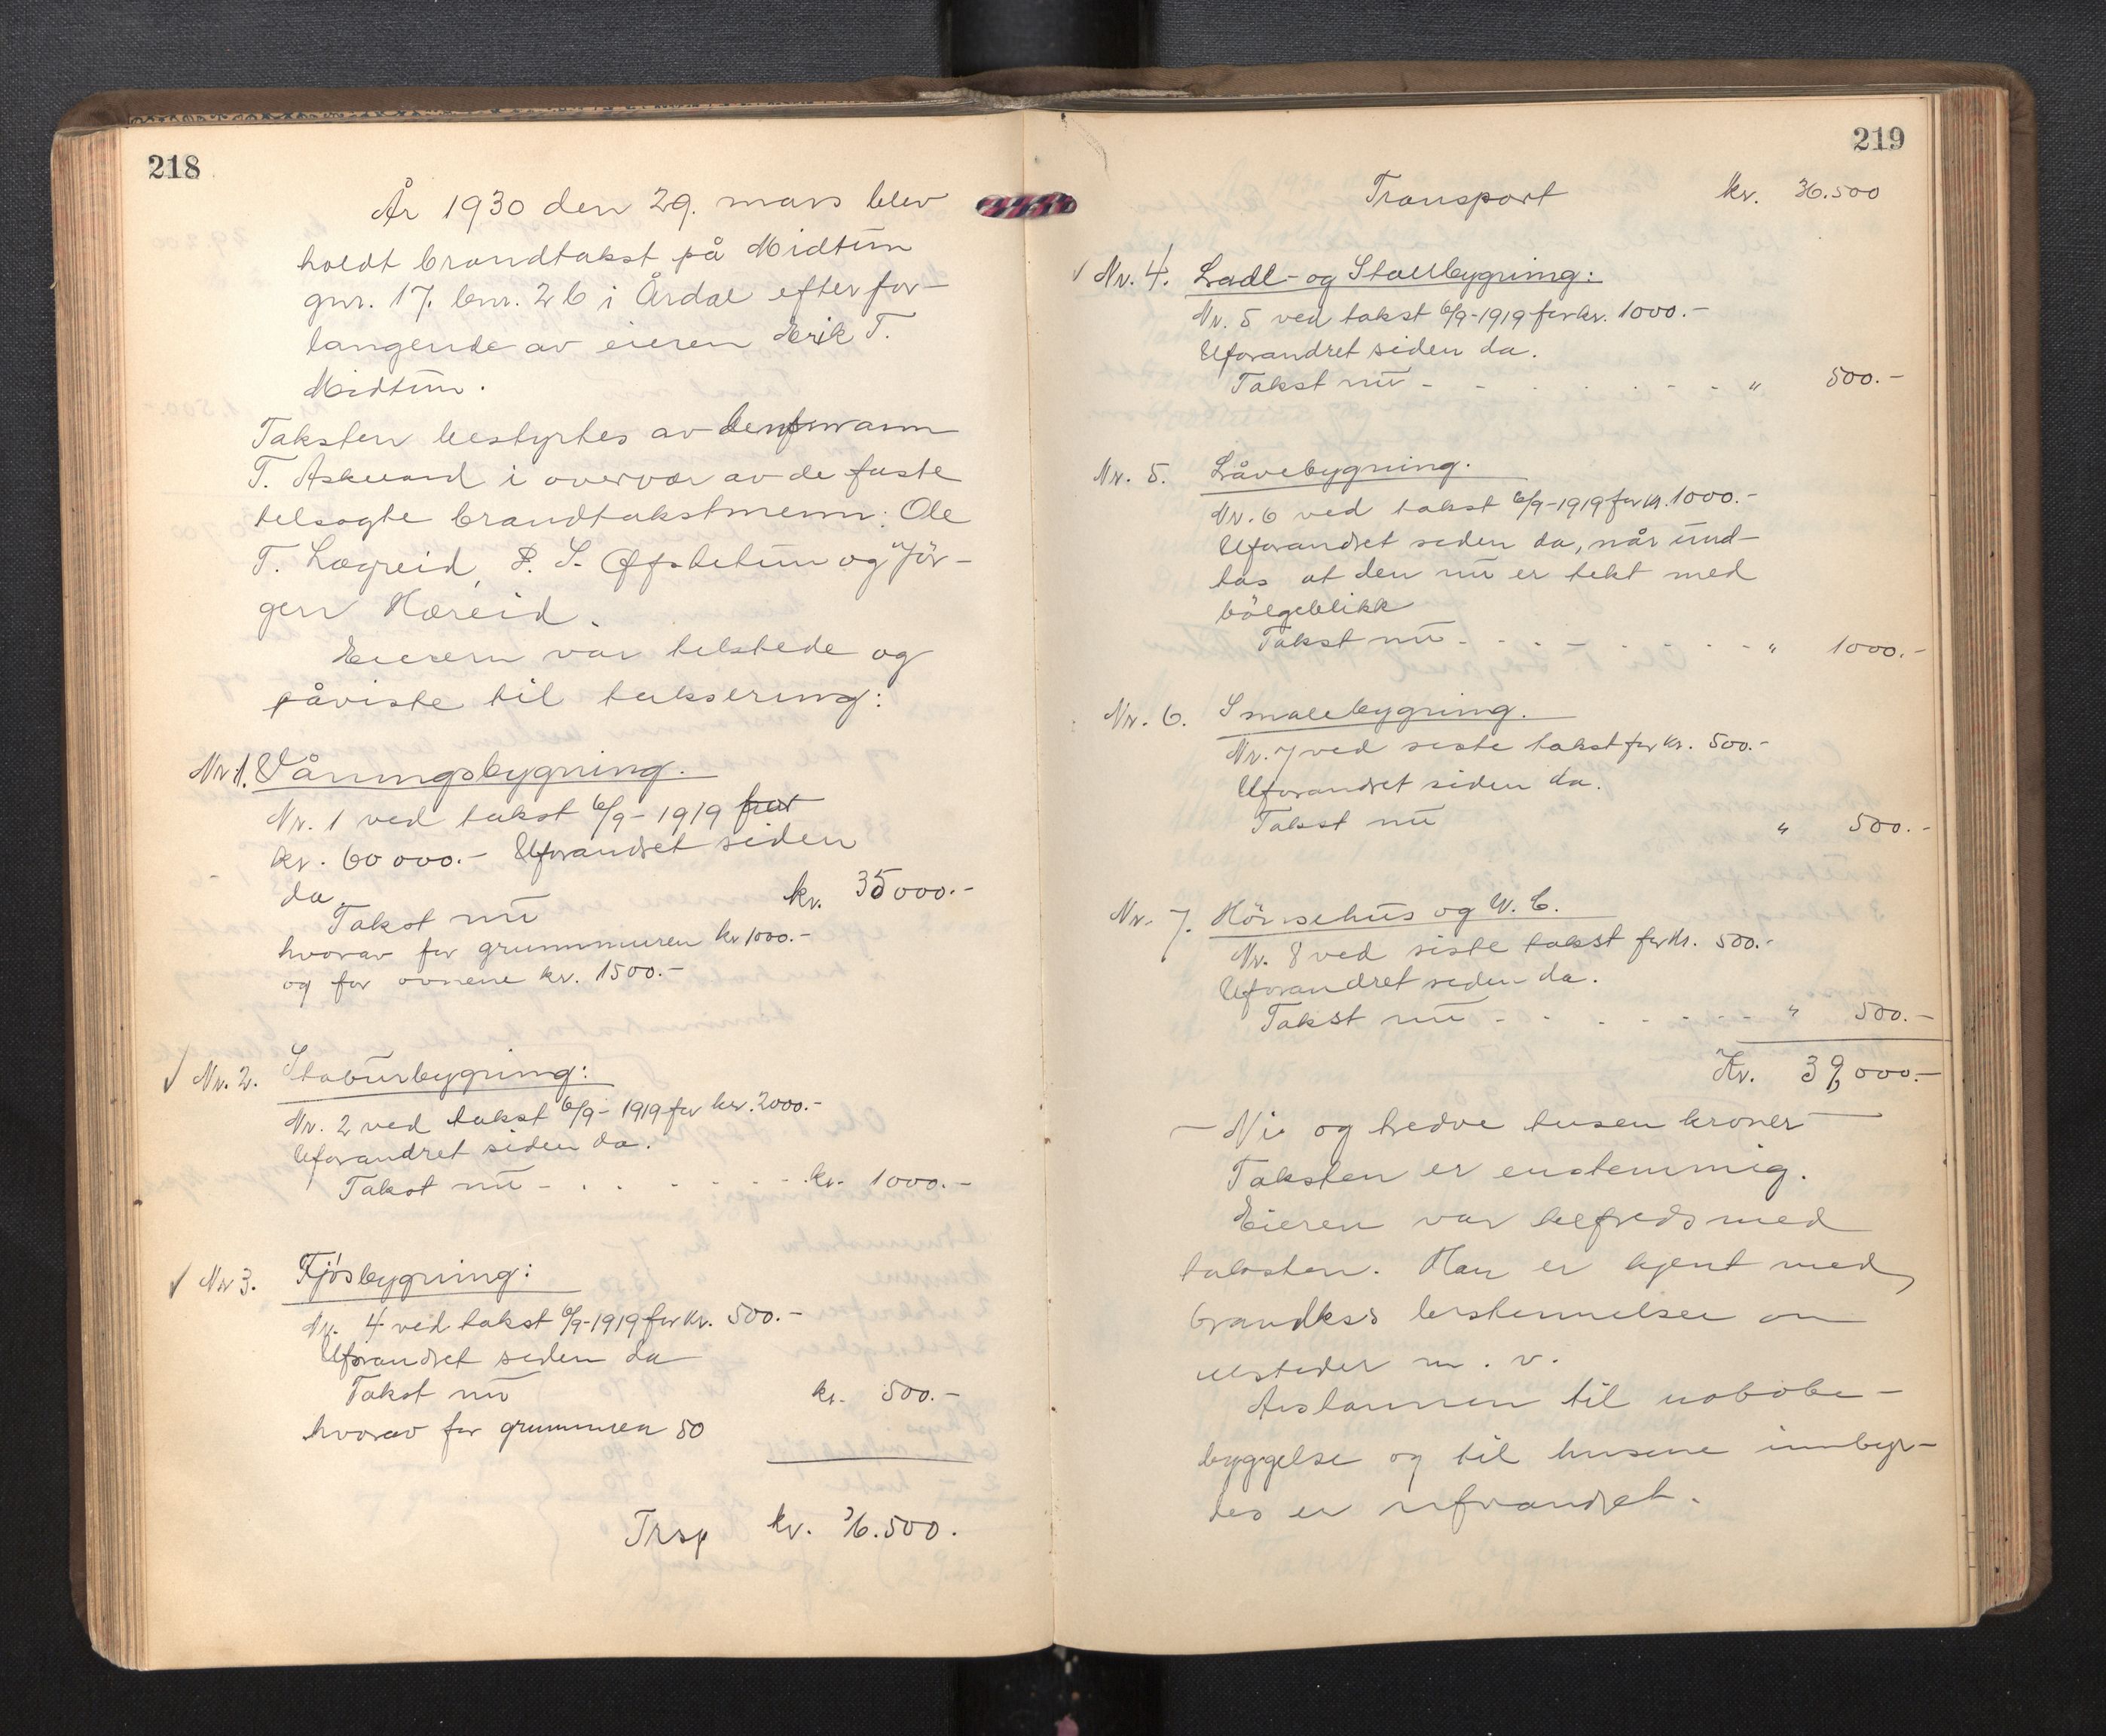 218
År 1930 den 29. mars blev
holdt brandtakst på Midtun
gnr. 17. bnr. 26 i Årdal efter for-
langende av eieren Erik T.
Midtun.
Taksten bestyrtes av lensmann
T. Askvand i overvær av de faste
telsagte brandtakstmenn: Ole
T. Lægreid, P. S. Øfstetun og Jör-
gen Hæreid.
Eieren var telstede og
påviste til taksering:
Nr. 1. Våningsbygning.
Nr. 1 ved takst 6/9-1919 for
kr. 60 000.- Uforandret siden
da.
Takst nu kr. 35000.-
hvorav for grunnmuren kr 1000.-
og for ovnene kr. 1500.-
Nr. 2. Staburbygning:
Nr. 2 ved takst 6/9-1919 for kr. 2000.-
Uforandret siden da.
Takst nu - - - - - - - kr. 1000.-
Nr 3. Fjösbygning:
Nr. 4 ved takst 6/9-1919 for kr. 500.-
Uforandret siden da
Takst nu kr. 500.-
hvorav for grunmuren 50
Trsp kr. 36.500.
219
Transport kr. 36.500
Nr. 4. Ladl- og Stallbygning:
Nr. 5 ved takst 6/9-1919 for kr. 1000.-
Uforandret siden da.
Takst nu - - - - - - - - " 500.-
Nr. 5. Låvebygning.
Nr. 6 ved takst 6/9-1919 for kr. 1000.-
Uforandret siden da, når und-
tas at den nu er tekt med
bölgeblikk
Takst nu - - - - - - - - " 1000.-
Nr. 6. Smalebygning.
Nr. 7 ved siste takst for kr. 500.-
Uforandret siden da.
Takst nu " 500.-
Nr. 7. Hönsehus og W. C.
Nr. 8 ved siste takst for kr. 500.-
Uforandret siden da.
Takst nu - - - - - - - " 500.-
Kr. 39,000.-
- Ni og tredve tusen kroner -
Taksten er enstemmig.
Eieren var telfreds med
taksten. Han er kjent med
brandkss bestemmelser om
ilsteder m. v.
Avstannen til nabobe-
byggelse og til husene innbyr-
des er uforandret.